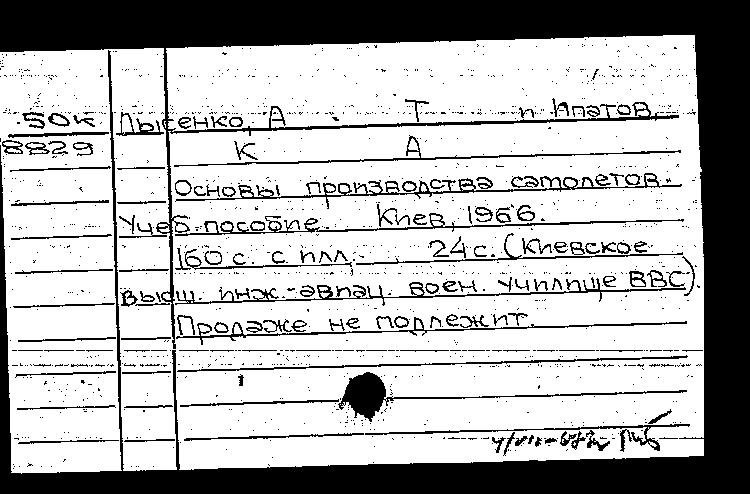 50к Лысенко, А Т и Ипатов,
8829 К А
Основы производства самолетов.
Учеб. пособие. Киев, 1966.
160 с. с илл, 24 с. (Киевское
высш. инж.-авиац. воен. училище ВВС).
Продаже не подлежит.